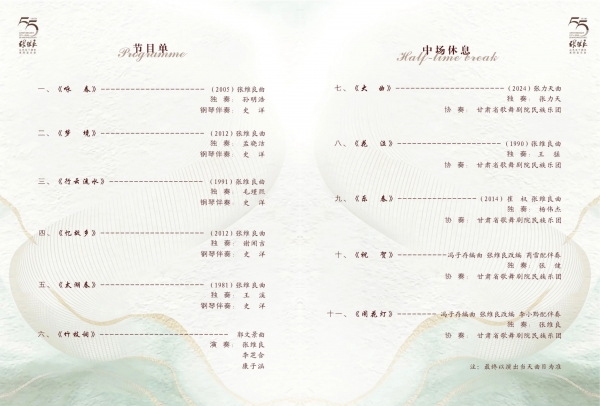 55
节目单
Programme
一、《咏 春》 (2005)张维良曲
独 奏： 孙明浩
钢琴伴奏： 史 洋
二、《梦 境》 (2012)张维良曲
独 奏： 孟晓洁
钢琴伴奏： 史 洋
三、《行云流水》 (1991)张维良曲
独 奏： 毛瑾熙
钢琴伴奏： 史 洋
四、《忆故乡》 (2012)张维良曲
独 奏： 谢闻言
钢琴伴奏： 史 洋
五、《太湖春》 (1981)张维良曲
独 奏： 王 溪
钢琴伴奏： 史 洋
六、《竹枝词》 郭文景曲
演 奏： 张维良
李芝含
康子涵
55
中场休息
Half-time break
七、《大 曲》 (2024)张力天曲
独 奏： 张力天
协 奏： 甘肃省歌舞剧院民族乐团
八、《花 泣》 (1990)张维良曲
独 奏： 王 猛
协 奏： 甘肃省歌舞剧院民族乐团
九、《乐 春》 (2014) 崔 权 张维良曲
独 奏： 杨伟杰
协 奏： 甘肃省歌舞剧院民族乐团
十、《祝 贺》 冯子存编曲 张维良改编 芮雷配伴奏
独 奏： 张 健
协 奏： 甘肃省歌舞剧院民族乐团
十一、《闹花灯》 冯子存编曲 张维良改编 李小黔配伴奏
独 奏： 张维良
协 奏： 甘肃省歌舞剧院民族乐团
注：最终以演出当天曲目为准